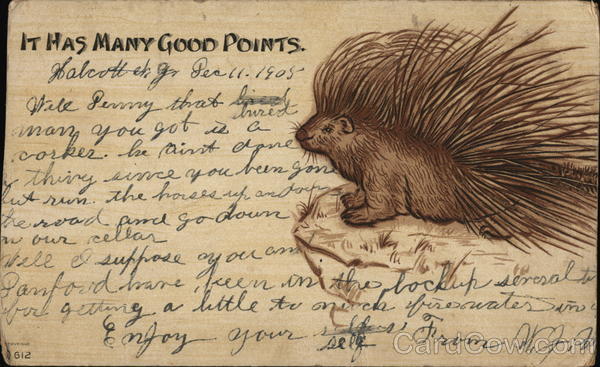 IT HAS MANY GOOD POINTS.
Halcott Dec 11. 1905
Well Penny that
hired
man you got is a
corker. he aint done
thing since you been gone
but run. the horses up and down
the road and go down
in our cellar
Well I suppose you and
Sanford have been in the lockup several
for getting a little to much firewater in
Enjoy your self From
612
CardCow.com